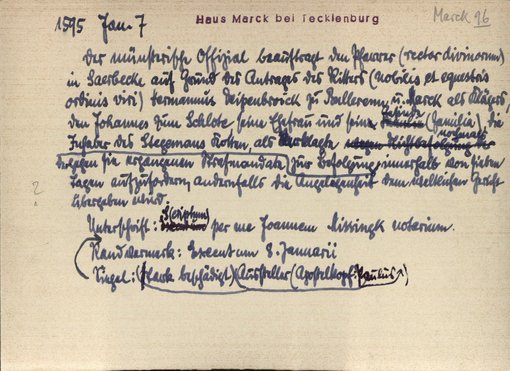 1595 Jan. 7
Haus Marck bei Tecklenburg
Marck 96
Der münsterische Offizial beauftragt den Pfarrer (rector divinorum)
in Saerbecke auf Grund des Antrages des Ritters (nobilis et equestris
ordinis viri) Hermannus Velpenbroick zu u. Marck als Klägers,
den Johannes zum Schlote seine Ehefrau und seine Gesinde (familia) die
Inhaber des Stegemans Kotten, als Verklagte normals
gegen sie ergangenen Strafmandate zur Befolgung innerhalb von sieben
Tagen aufzufordern, andernfalls die Angelegenheit dem weltlichen Gericht
übergeben wird.
?
Unterschrift: Scriptum per me Joannem Missingk notarium.
Randvermerk: Executum 8. Januarii
Siegel: (stark beschädigt) Aussteller (Apostelkopf: Paulus?)